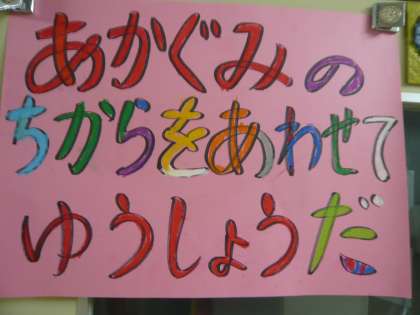 あかぐみの
ちからをあわせて
ゆうしょうだ